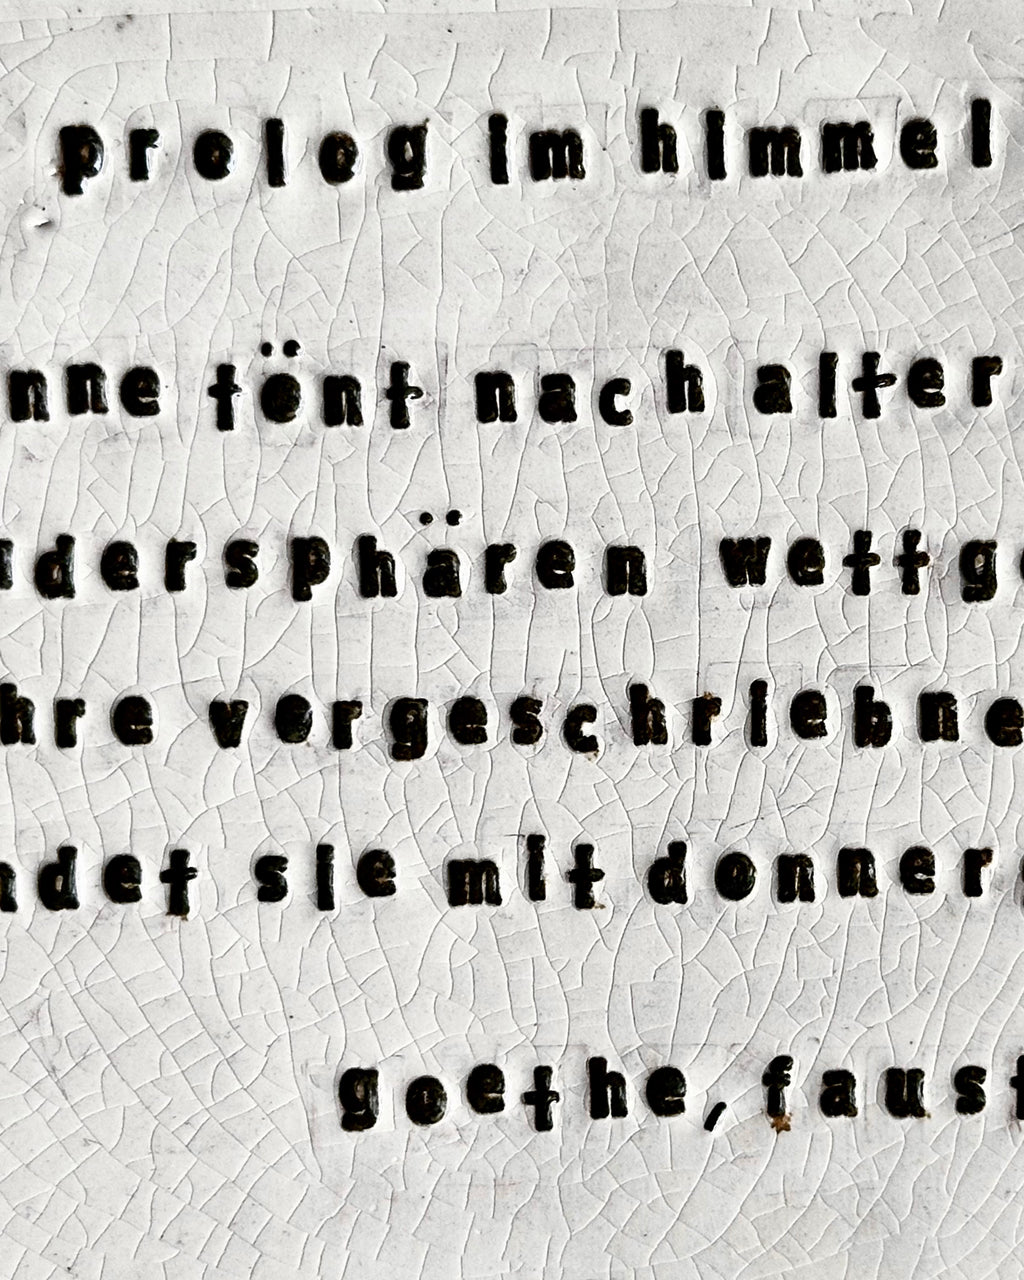 prolog im himmel
nne tönt nach alter
udersphären wettge
hre vorgeschriebne
ndet sie mit donner
goethe, faust